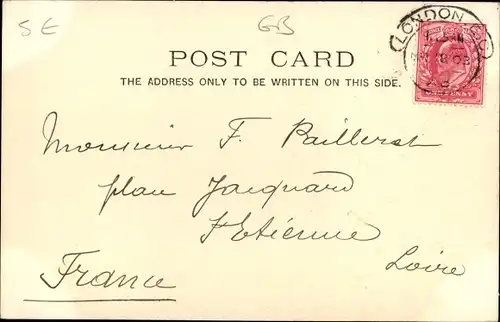 SE
GB
LONDON
POST CARD
THE ADDRESS ONLY TO BE WRITTEN ON THIS SIDE.
PENNY
Monsieur F. Baillerat
plan Jacquard
St Etienne
Loire
France